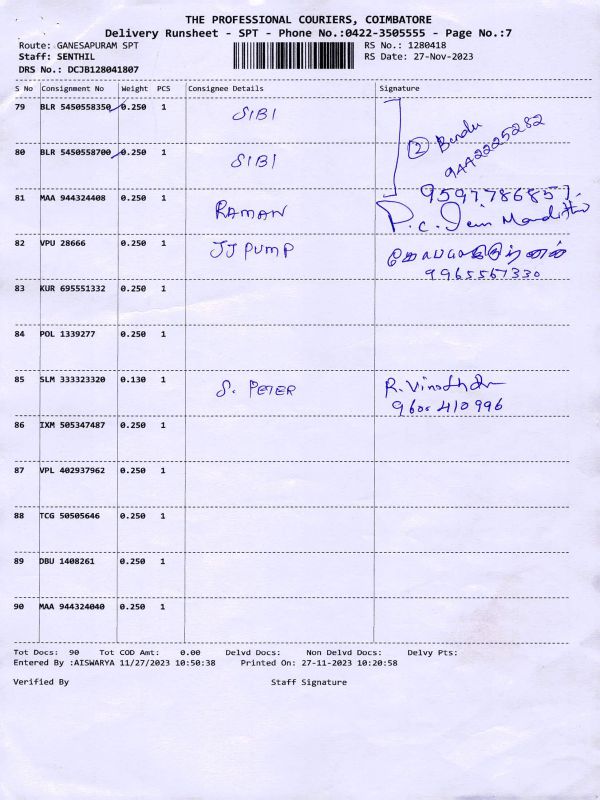 THE PROFESSIONAL COURIERS, COIMBATORE
Delivery Runsheet - SPT - Phone No.:0422-3505555 - Page No.:7
Route: GANESAPURAM SPT
RS No.: 1280418
Staff: SENTHIL
RS Date: 27-Nov-2023
DRS No.: DCJB128041807
S No Consignment No Weight PCS Consignee Details Signature
79 BLR 5450558350 0.250 1 SIBI
② 9442225282
80 BLR 5450558700 0.250 1 SIBI
9597786857
81 MAA 944324408 0.250 1 RAMAN P.c.
82 VPU 28666 0.250 1 JJ PUMP
9965567330
83 KUR 695551332 0.250 1
84 POL 1339277 0.250 1
85 SLM 333323320 0.130 1 S. PETER R. Vinodh
9600 410 996
86 IXM 505347487 0.250 1
87 VPL 402937962 0.250 1
88 TCG 50505646 0.250 1
89 DBU 1408261 0.250 1
90 MAA 944324040 0.250 1
Tot Docs: 90 Tot COD Amt: 0.00 Delvd Docs: Non Delvd Docs: Delvy Pts:
Entered By :AISWARYA 11/27/2023 10:50:38 Printed On: 27-11-2023 10:20:58
Verified By Staff Signature